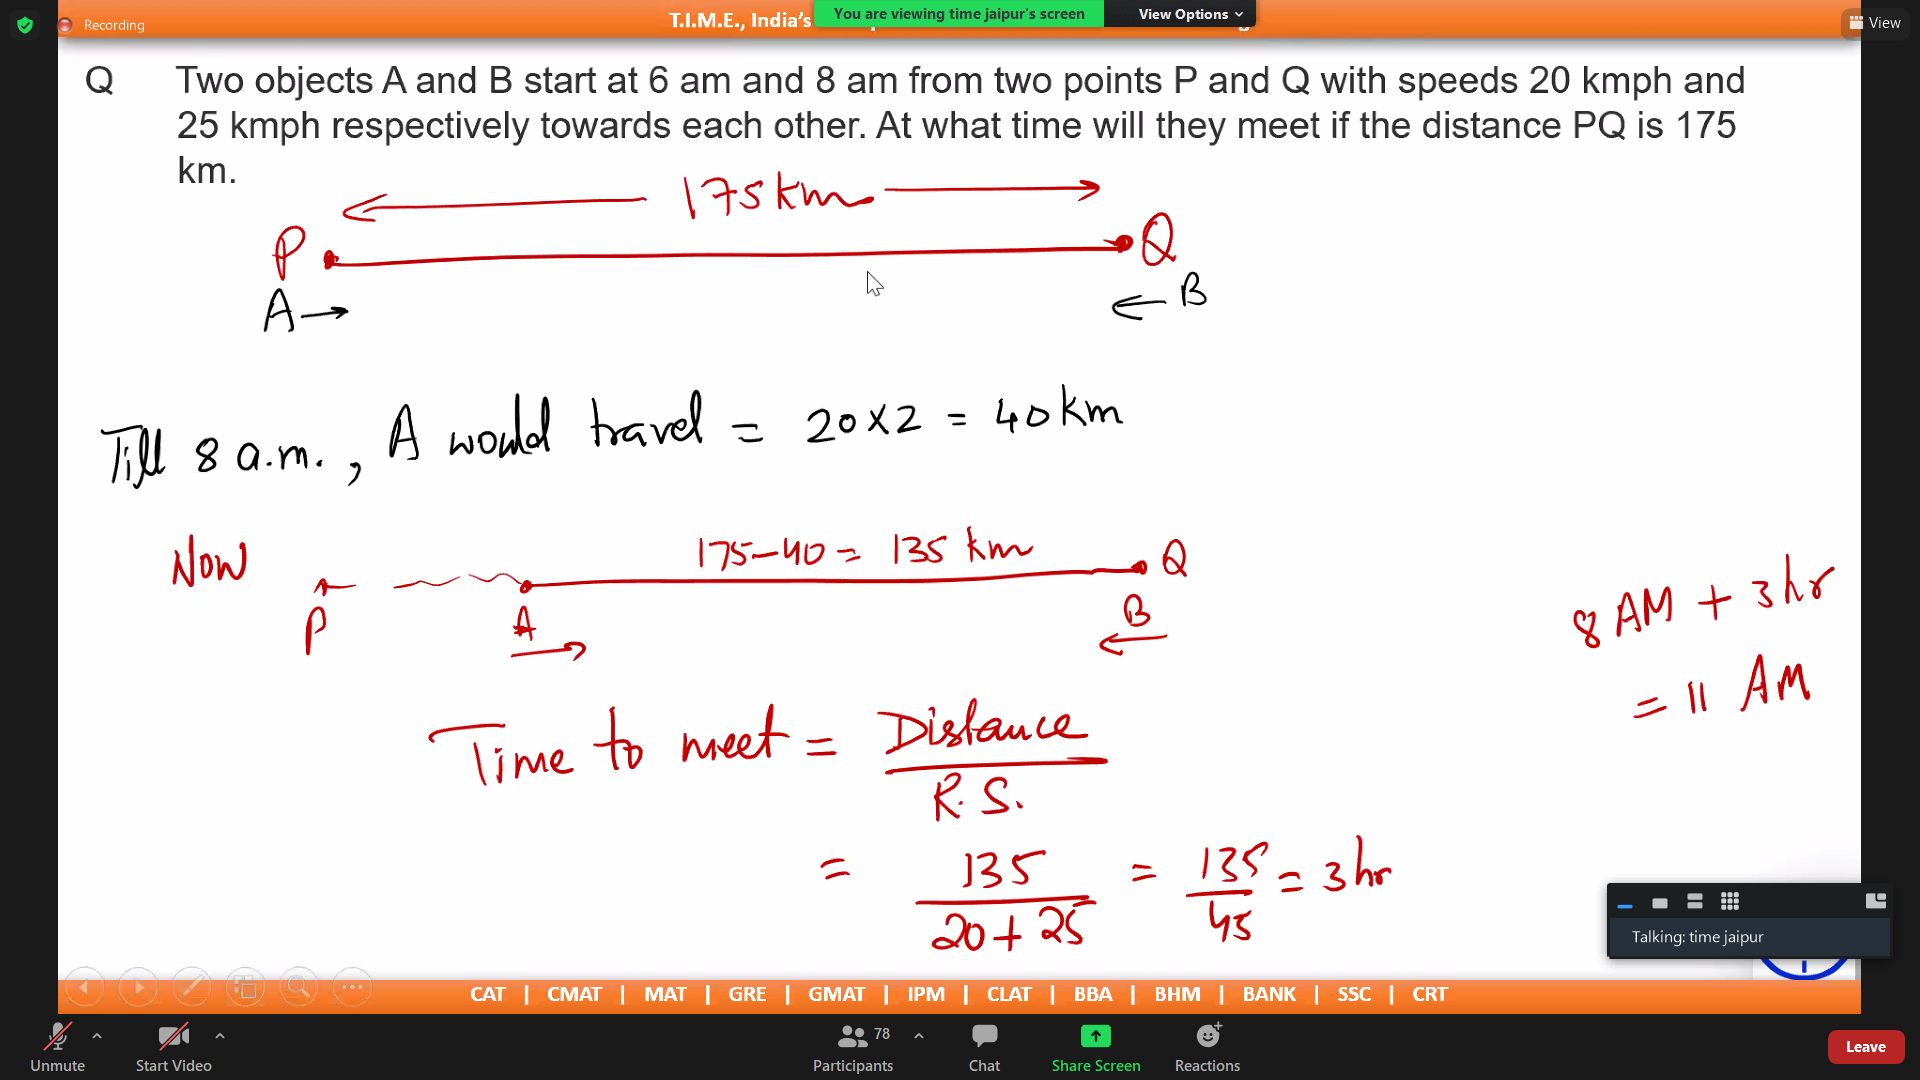 Recording
T.I.M.E., India's
You are viewing time jaipur's screen
View Options
View
Q Two objects A and B start at 6 am and 8 am from two points P and Q with speeds 20 kmph and
25 kmph respectively towards each other. At what time will they meet if the distance PQ is 175
km.
175 km
P Q
A → ← B
Till 8 a.m., A would travel = 20 x 2 = 40 km
Now 175-40 = 135 km Q
P A B
8 AM + 3 hr
= 11 AM
Time to meet = Distance
R.S.
= 135 = 135 = 3 hr
20 + 25 45
Talking: time jaipur
CAT | CMAT | MAT | GRE | GMAT | IPM | CLAT | BBA | BHM | BANK | SSC | CRT
Unmute
Start Video
78
Participants
Chat
Share Screen
Reactions
Leave